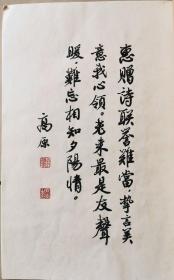 惠贈詩联誉難當，摯言美
意我心領。老来最是友聲
暖，難忘相知夕陽情。
高原